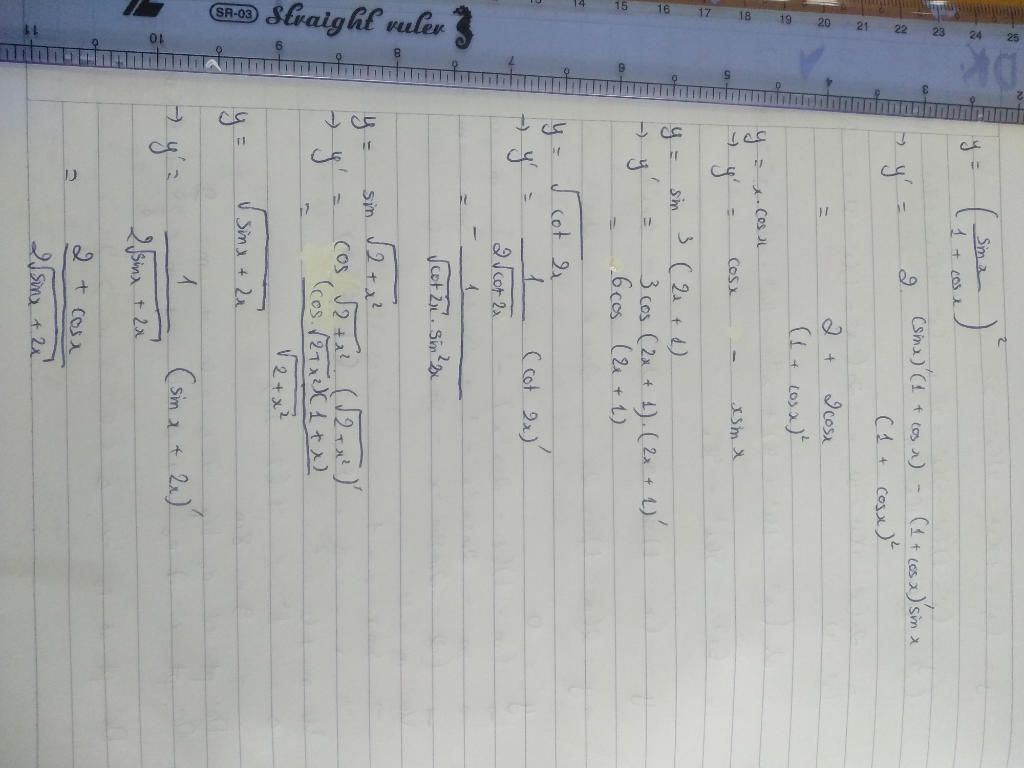 SR-03 Straight ruler
25 24 23 22 21 20 19 18 17 16 15 14 13
2 3 4 5 6 7 8 9 10 11
DK
y = (sinx / 1 + cosx)²
→ y' = 2 (sinx)'(1 + cosx) - (1 + cosx)'sinx / (1 + cosx)²
= 2 + 2cosx / (1 + cosx)²
y = x.cosx
→ y' = cosx - xsinx
y = sin 3 (2x + 1)
→ y' = 3cos(2x + 1).(2x + 1)'
= 6cos (2x + 1)
y = √cot 2x
→ y' = 1 / 2√cot2x (cot 2x)'
= - 1 / √cot2x . sin²2x
y = sin √2 + x²
→ y' = cos √2 + x² (√2 + x²)'
= (cos√2 + x²)(1 + x) / √2 + x²
y = √sinx + 2x
→ y' = 1 / 2√sinx + 2x (sinx + 2x)'
= 2 + cosx / 2√sinx + 2x